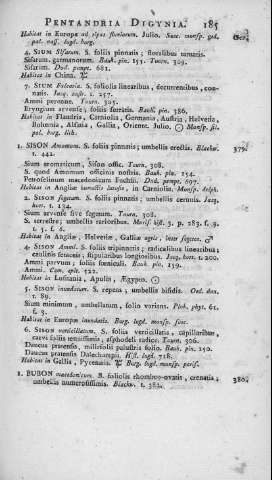 PENTANDRIA DIGYNIA. 185
Habitat in Europæ ad ripas fluviorum. Julio. Suec. monsp. ged.
pal. nass. lugd. burg.
4. SIUM Sisarum. S. foliis pinnatis; floralibus ternatis.
Sisarum germanorum. Bauh. pin. 155. Tourn. 309.
Sisarum. Dod. pempt. 681.
Habitat in China. ♃
7. SIUM Falcaria. S. foliolis linearibus, decurrentibus, connatis. Jacq. austr. t. 257.
Ammi perenne. Tourn. 305.
Eryngium arvense; foliis serratis. Bauh. pin. 386.
Habitat in Flandria, Carniolia, Germania, Austria, Helvetia,
Bohemia, Alsatia, Gallia, Orient. Julio. ☉ Monsp. sil.
pal. burg. lith.
1. SISON Amomum. S. foliis pinnatis; umbellis erectis. Blackw. 379.
t. 442.
Sium aromaticum, Sison offic. Tourn. 308.
S. quod Amomum officinis nostris. Bauh. pin. 154.
Petroselinum macedonicum Fuchsii. Dod. pempt. 697.
Habitat in Angliæ humidis lutosis, in Carniolia. Monsp. delph.
2. SISON segetum. S. foliis pinnatis; umbellis cernuis. Jacq.
hort. t. 134.
Sium arvense sive segetum. Tourn. 308.
S. terrestre; umbellis rarioribus. Moris. hist. 3. p. 283. s. 9.
t. 5. f. 6.
Habitat in Angliæ, Helvetiæ, Galliæ agris, inter segetes. ♂
4. SISON Ammi. S. foliis tripinnatis; radicalibus linearibus;
caulinis setaceis; stipularibus longioribus. Jacq. hort. t. 200.
Ammi parvum; foliis fœniculi. Bauh. pin. 159.
Ammi. Cam. epit. 522.
Habitat in Lusitania, Apulis, Ægypto. ☉
5. SISON inundatum. S. repens; umbellis bifidis. Oed. dan.
t. 89.
Sium minimum, umbellatum, folio varians. Pluk. phyt. 61.
f. 3.
Habitat in Europæ inundatis. Burg. lugd. monsp. suec.
6. SISON verticillatum. S. foliis verticillatis, capillaribus.
Carvi foliis tenuissimis, asphodeli radice. Tourn. 306.
Daucus pratensis, millefolii palustris folio. Bauh. pin. 150.
Daucus pratensis Dalechampii. Hist. lugd. 718.
Habitat in Gallia, Pyrenæis. ♃ Burg. lugd. monsp. paris.
1. BUBON macedonicum. B. foliolis rhombeo-ovatis, crenatis; 380.
umbellis numerosissimis. Blackw. t. 382.